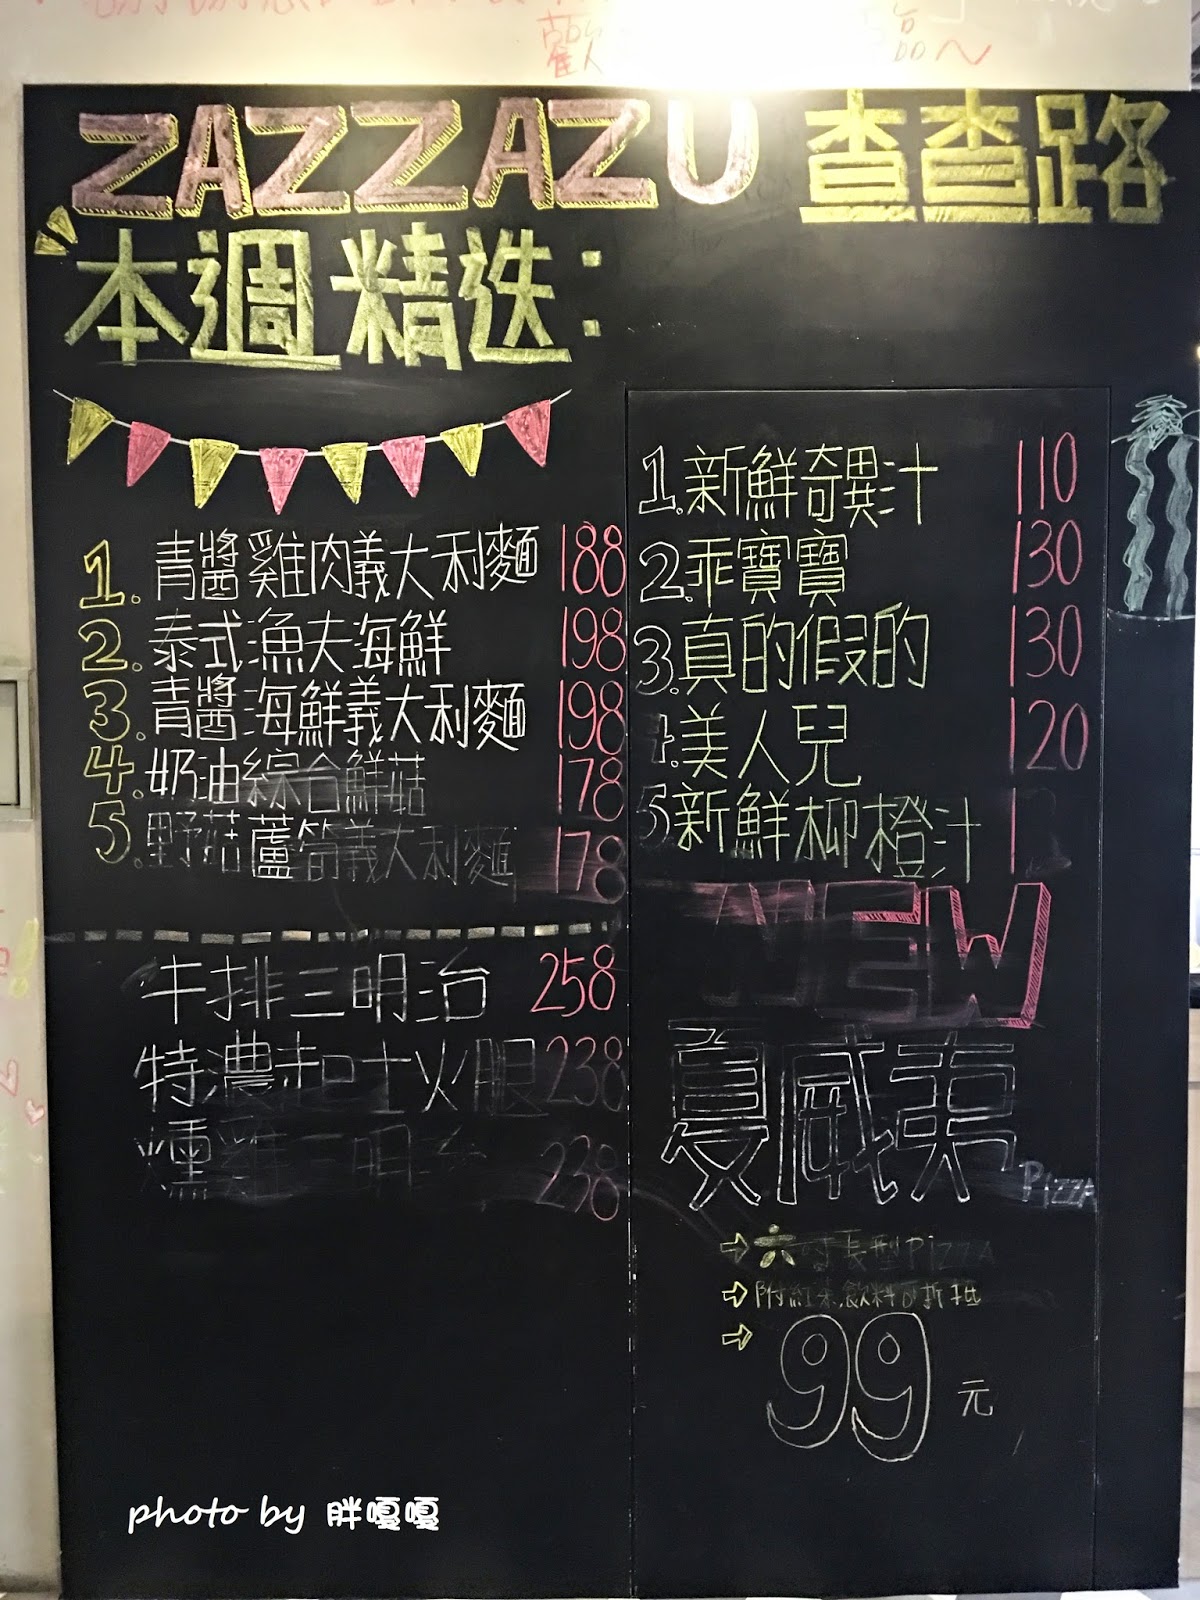 歡
ZAZZAZU 查查路
本週精迭:
1. 青醬雞肉義大利麵 188
2. 泰式漁夫海鮮 198
3. 青醬海鮮義大利麵 198
4. 奶油綜合鮮菇 178
5. 野菇蘆筍義大利麵 178
牛排三明治 258
特濃起士火腿 238
燻雞三明治 238
1. 新鮮奇異汁 110
2. 乖寶寶 130
3. 真的假的 130
4. 美人兒 120
5 新鮮柳橙汁
NEW
夏威夷 PizzA
六吋長型PizzA
附紅茶,飲料可折抵
99元
photo by 胖嘎嘎